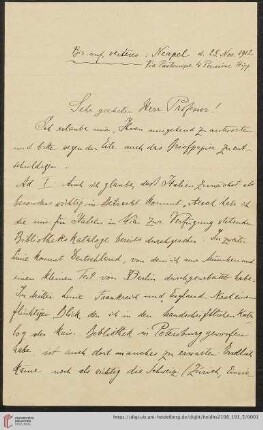 Bis auf weiteres: Neapel d. 23. Nov. 1902
Via Partenope Pension
Sehr geehrter Herr Professor!
Ich erlaube mir, Ihnen umgehend zu antworten
und bitte wegen der Eile auch das Briefpapier zu ent-
schuldigen.
Ad I. Auch ich glaube, daß Italien zunächst als
besonders wichtig in Betracht kommt, doch habe ich
die mir für Italien in zur Verfügung stehenden
Bibliotheks Kataloge bereits durchgesehen. In zweiter
Linie kommt Deutschland, von dem ich nur München und
einen kleinen Teil von Berlin durchgearbeitet habe.
In dritter Linie Frankreich und England. Nach einem
flüchtigen Blick, den ich in den handschriftlichen Kata-
log der Kais. Bibliothek in Petersburg geworfen
habe ist auch dort manches zu erwarten. Endlich
käme noch als wichtig die Schweiz (Zürich,
https://digi.ub.uni-heidelberg.de/diglit/heidhs2108_191_2/0001